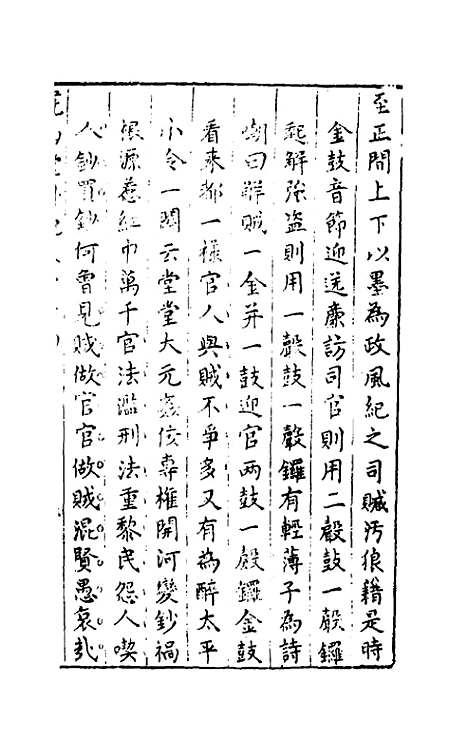 至正間上下以墨為政風紀之司贓汚狼籍是時
金鼓音節迎送廉訪司官則用二聲鼓一聲鑼
起解強盗則用一聲鼓一聲鑼有輕薄子為詩
嘲曰解賊一金并一鼓迎官兩鼓一聲鑼金鼓
看來都一樣官人與賊不爭多又有為醉太平
小令一闋云堂堂大元奸佞專權開河變鈔禍
根源惹紅巾萬千官法濫刑法重黎民怨人喫
人鈔買鈔何曾見賊做官官做賊混賢愚哀哉